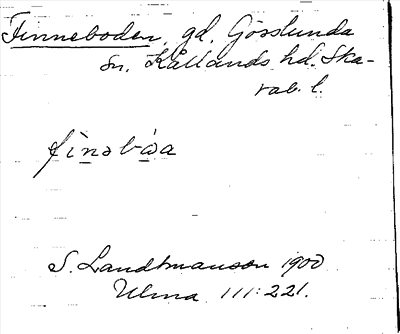 Finneboden, gd, Gösslunda
sn, Kållands hd. Ska-
rab. l.
finəbωa
S. Landtmanson 1900
Ulma 111:221.